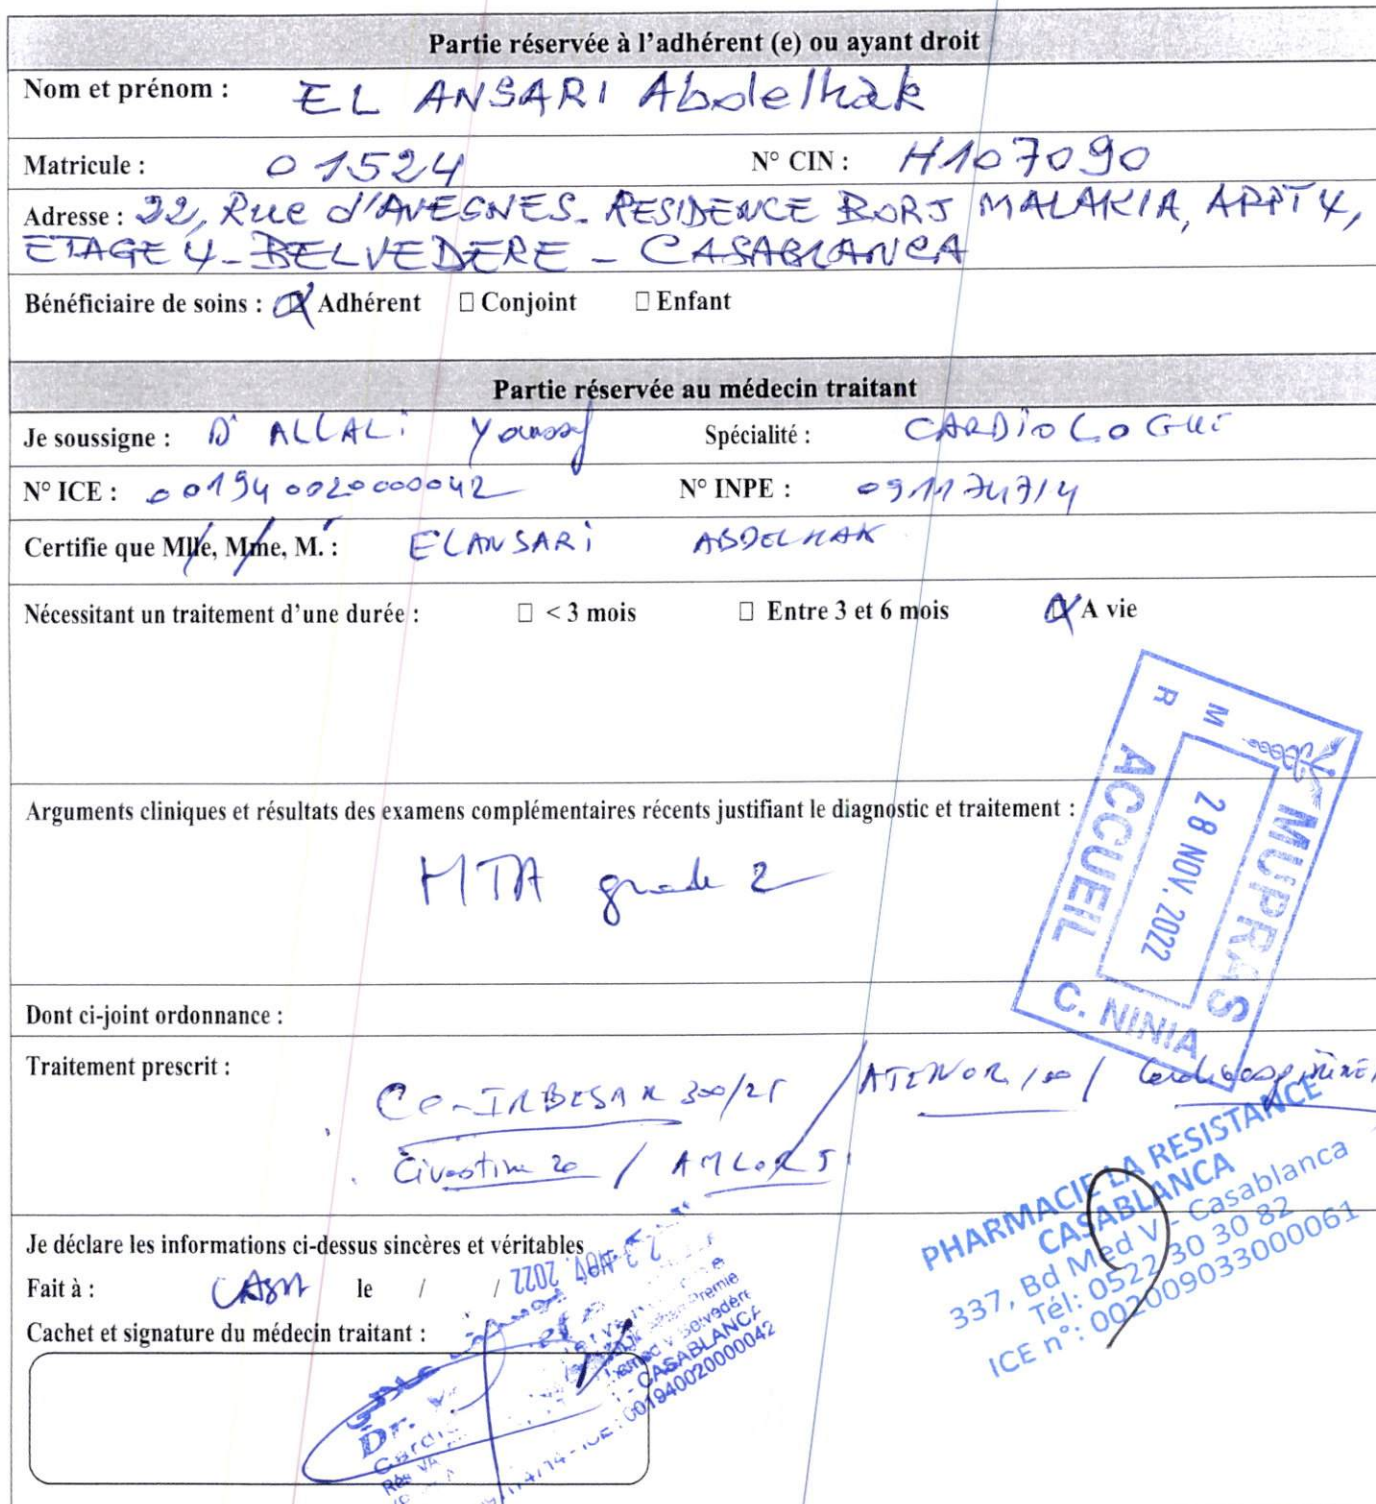 Partie réservée à l'adhérent (e) ou ayant droit
Nom et prénom : EL ANSARI Abdelhak
Matricule : 01524 N° CIN : H107090
Adresse : 22, Rue d'AVESNES - RESIDENCE BORJ MALAKIA, APPT 4,
ETAGE 4 - BELVEDERE - CASABLANCA
Bénéficiaire de soins : Adhérent □ Conjoint □ Enfant
Partie réservée au médecin traitant
Je soussigne : Dr ALLALi Youssef Spécialité : CARDiOLOGUE
N° ICE : 001940020000042 N° INPE : 091174714
Certifie que Mlle, Mme, M. : ELANSARi ABDELHAK
Nécessitant un traitement d'une durée : □ < 3 mois □ Entre 3 et 6 mois A vie
R M
MUPRAS
28 NOV. 2022
ACCUEIL
C. NINIA
Arguments cliniques et résultats des examens complémentaires récents justifiant le diagnostic et traitement :
HTA grade 2
Dont ci-joint ordonnance :
Traitement prescrit :
Co-IRBESAR 300/25 / ATENOR 100 / Cardioaspirine
Civastine 20 / AMLOR 5
PHARMACIE LA RESISTANCE
CASABLANCA
337, Bd Med V - Casablanca
Tél: 0522 30 30 82
ICE n°: 002009033000061
Je déclare les informations ci-dessus sincères et véritables
Fait à : CASA le / / NOV. 2022
Cachet et signature du médecin traitant :
Dr.
CASABLANCA
ICE : 001940020000042